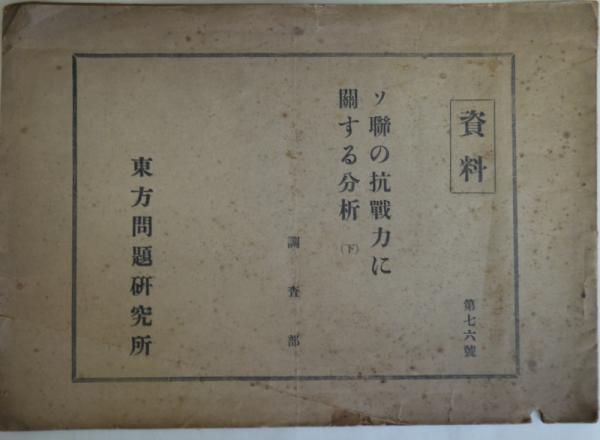 資料
第七六號
ソ聯の抗戰力に
關する分析（下）
調査部
東方問題研究所